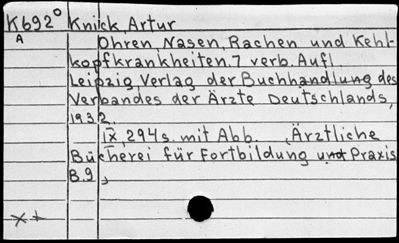 K692° Knick, Artur
A Ohren, Nasen, Rachen und Kehl-
kopfkrankheiten. 7 verb. Aufl.
Leipzig, Verlag der Buchhandlung des
Verbandes der Ärzte Deutschlands,
1932.
IX, 294s. mit Abb. (Ärztliche
Bücherei für Fortbildung und Praxis
B.9)